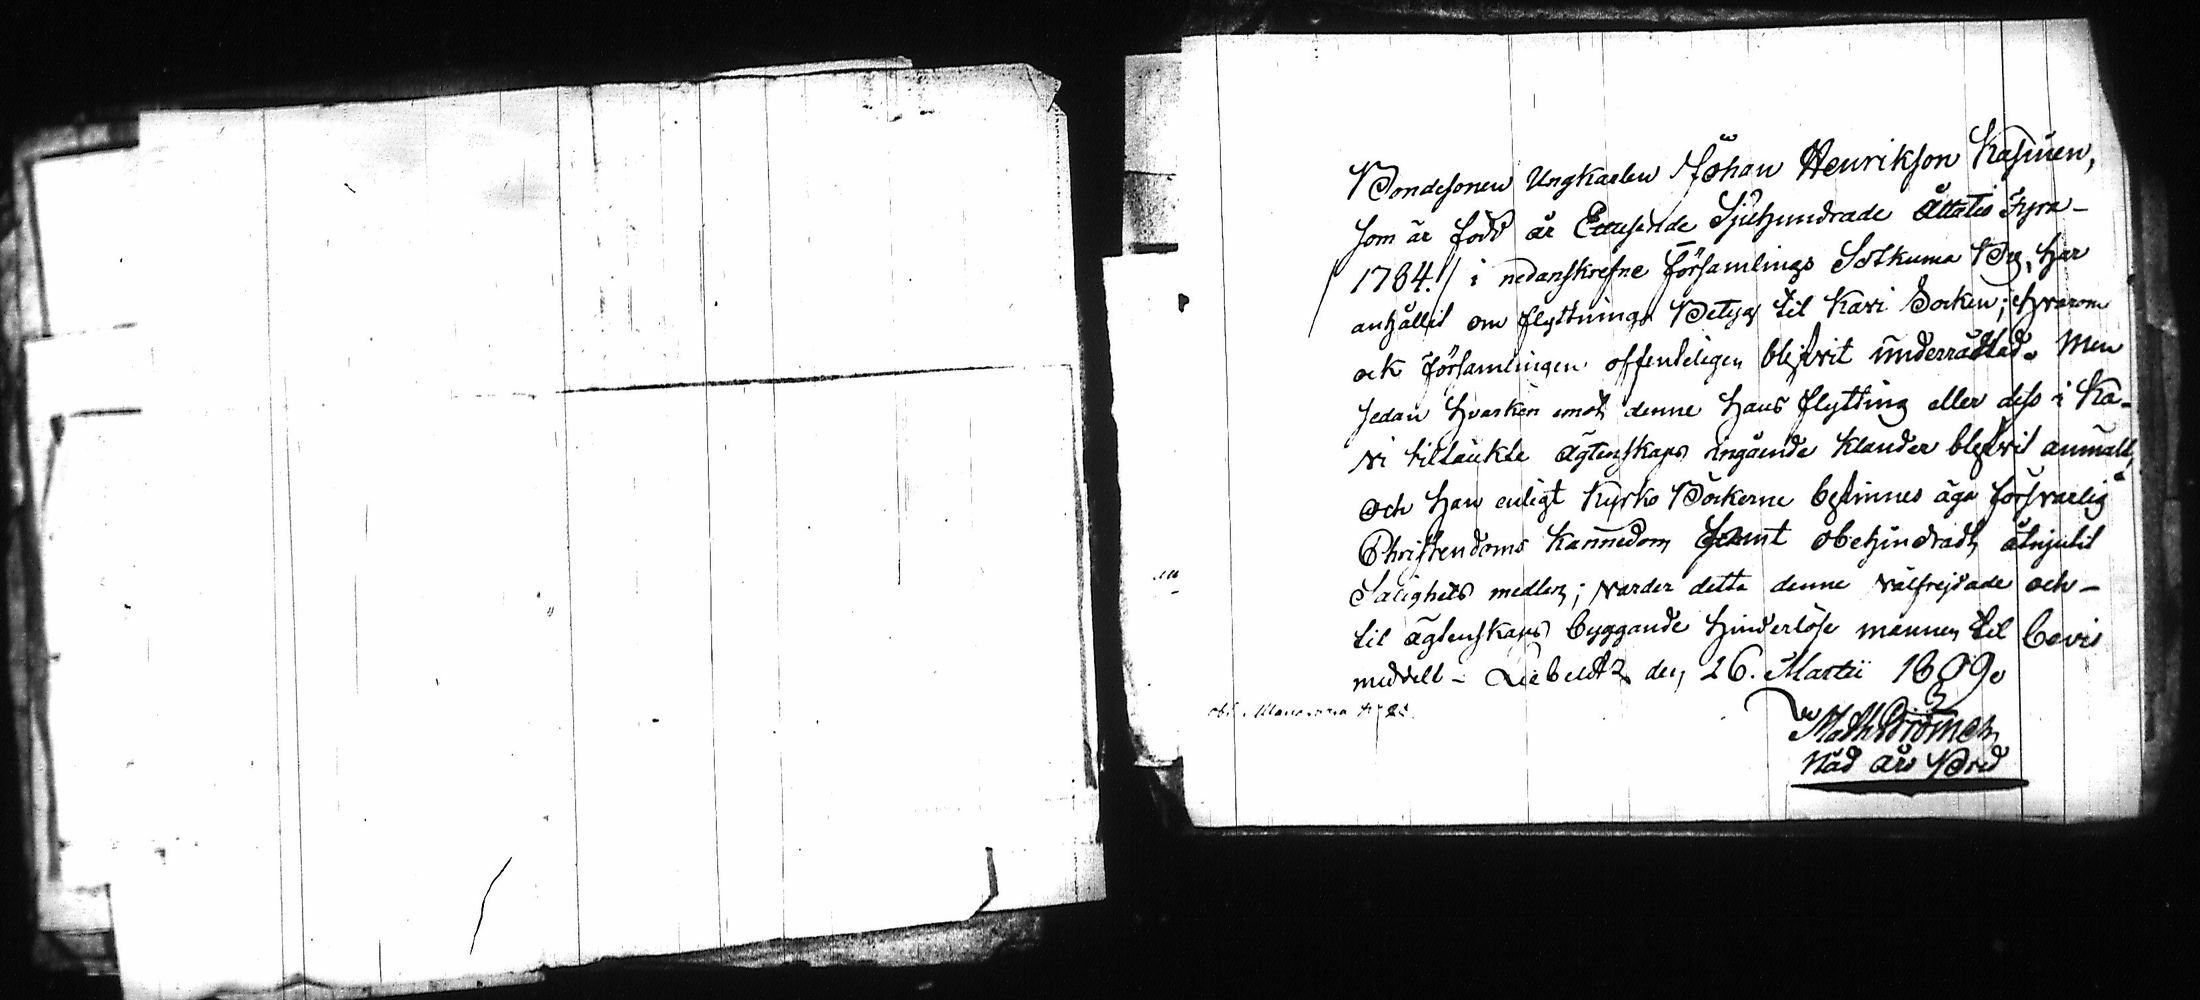 Bondesonen Ungkarlen Johan Henrikson Kasinen,
som är född år Ettusende Sjuhundrade Åttatio Fyra -
/1784./ i nedanskrefne Församlings Sotkuma By, har
anhållit om flyttnings Betyg til Kavi Socken; hvarom
ock Församlingen offenteligen blifvit underrättad. Men
sedan hvarken emot denne hans flytting eller dess i Ka-
vi tiltänkte ägtenskaps ingående klander blifvit anmält,
och han enligt Kyrko Böckerne befinnes äga försvarlig
Christendoms kännedom samt obehindradt åtnjutit
Salighets medlen; varder detta denne välfrejdade och -
til ägtenskaps byggande hinderlöse mannen til bevis
meddelt - Liebelitz den 26. Martii 1809.
Nåd års Pred